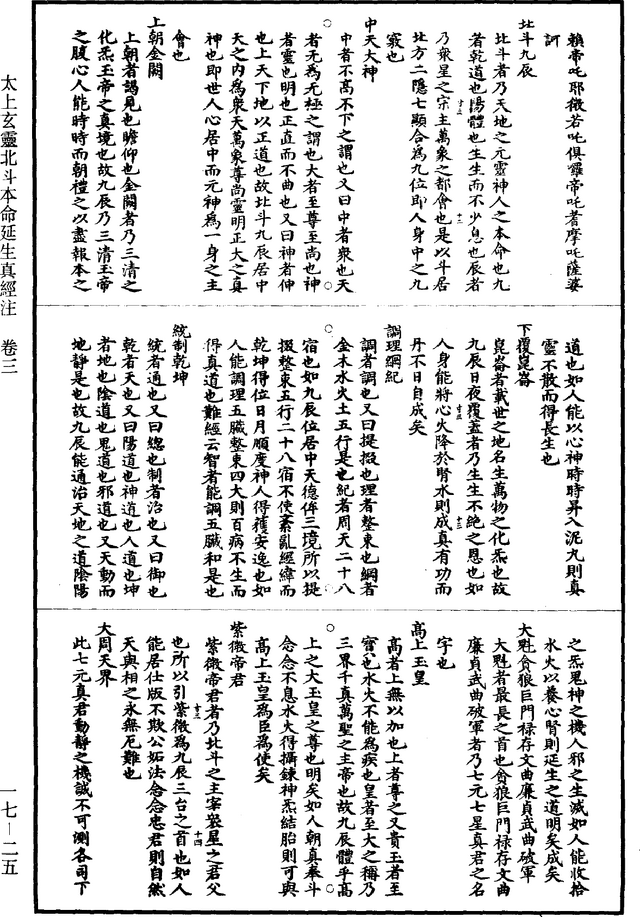 賴帝吒耶微若吒俱囉帝吒耆摩吒薩婆
訶
北斗九辰
北斗者乃天地之元靈神人之本命也九
者乾道也陽體也生生而不少息也辰者
乃衆星之宗主萬象之都會也是以斗居
北方二隱七顯合為九位即人身中之九
竅也
中天大神
中者不高不下之謂也又曰中者衆也天
者无為无極之謂也大者至尊至尚也神
者靈也明也正直而不曲也又曰神者伸
也上天下地以正道也故北斗九辰居中
天之内為衆天萬象尊尚靈明正大之真
神也即世人心居中而元神為一身之主
會也
上朝金闕
上朝者謁見也瞻仰也金闕者乃三清之
化炁玉帝之真境也故九辰乃三清玉帝
之腹心人能時時而朝禮之以盡報本之
道也如人能以心神時時昇入泥丸則真
靈不散而得長生也
下覆崑崙
崑崙者載世之地名生萬物之化炁也故
九辰日夜覆蓋者乃生生不絶之恩也如
人身能將心火降於腎水則成真有功而
丹不日自成矣
調理綱紀
調者調也又曰提掇也理者整束也綱者
金木水火土五行是也紀者周天二十八
宿也如九辰位居中天德侔三境所以提
掇整束五行二十八宿不使紊亂經緯而
乾坤得位日月順度神人得獲安逸也如
人能調理五臟整束四大則百病不生而
得真道也難經云智者能調五臟和是也
統制乾坤
統者通也又曰總也制者治也又曰御也
乾者天也又曰陽道也神道也人道也坤
者地也陰道也鬼道也邪道也又天動而
地靜是也故九辰能通治天地之道陰陽
之炁鬼神之機人邪之生滅如人能收拾
水火以養心腎則延生之道明矣成矣
大魁貪狼巨門祿存文曲廉貞武曲破軍
大魁者最長之首也貪狼巨門祿存文曲
廉貞武曲破軍者乃七元七星真君之名
字也
高上玉皇
高者上無以加也上者尊之又貴玉者至
寳也水火不能為疾也皇者至大之稱乃
三界千真萬聖之主帝也故九辰體乎高
上之大玉皇之尊也明矣如人朝真奉斗
念念不息水火得攝鍊神炁結胎則可與
高上玉皇為臣為使矣
紫微帝君
紫微帝君者乃北斗之主宰衆星之君父
也所以引紫微為九辰三台之首也如人
能居仕版不欺公妬法念念忠君則自然
天與相之永無厄難也
大周天界
此七元真君動靜之機誠不可測各司下
太上玄靈北斗本命延生真經注　卷三
一七—二五